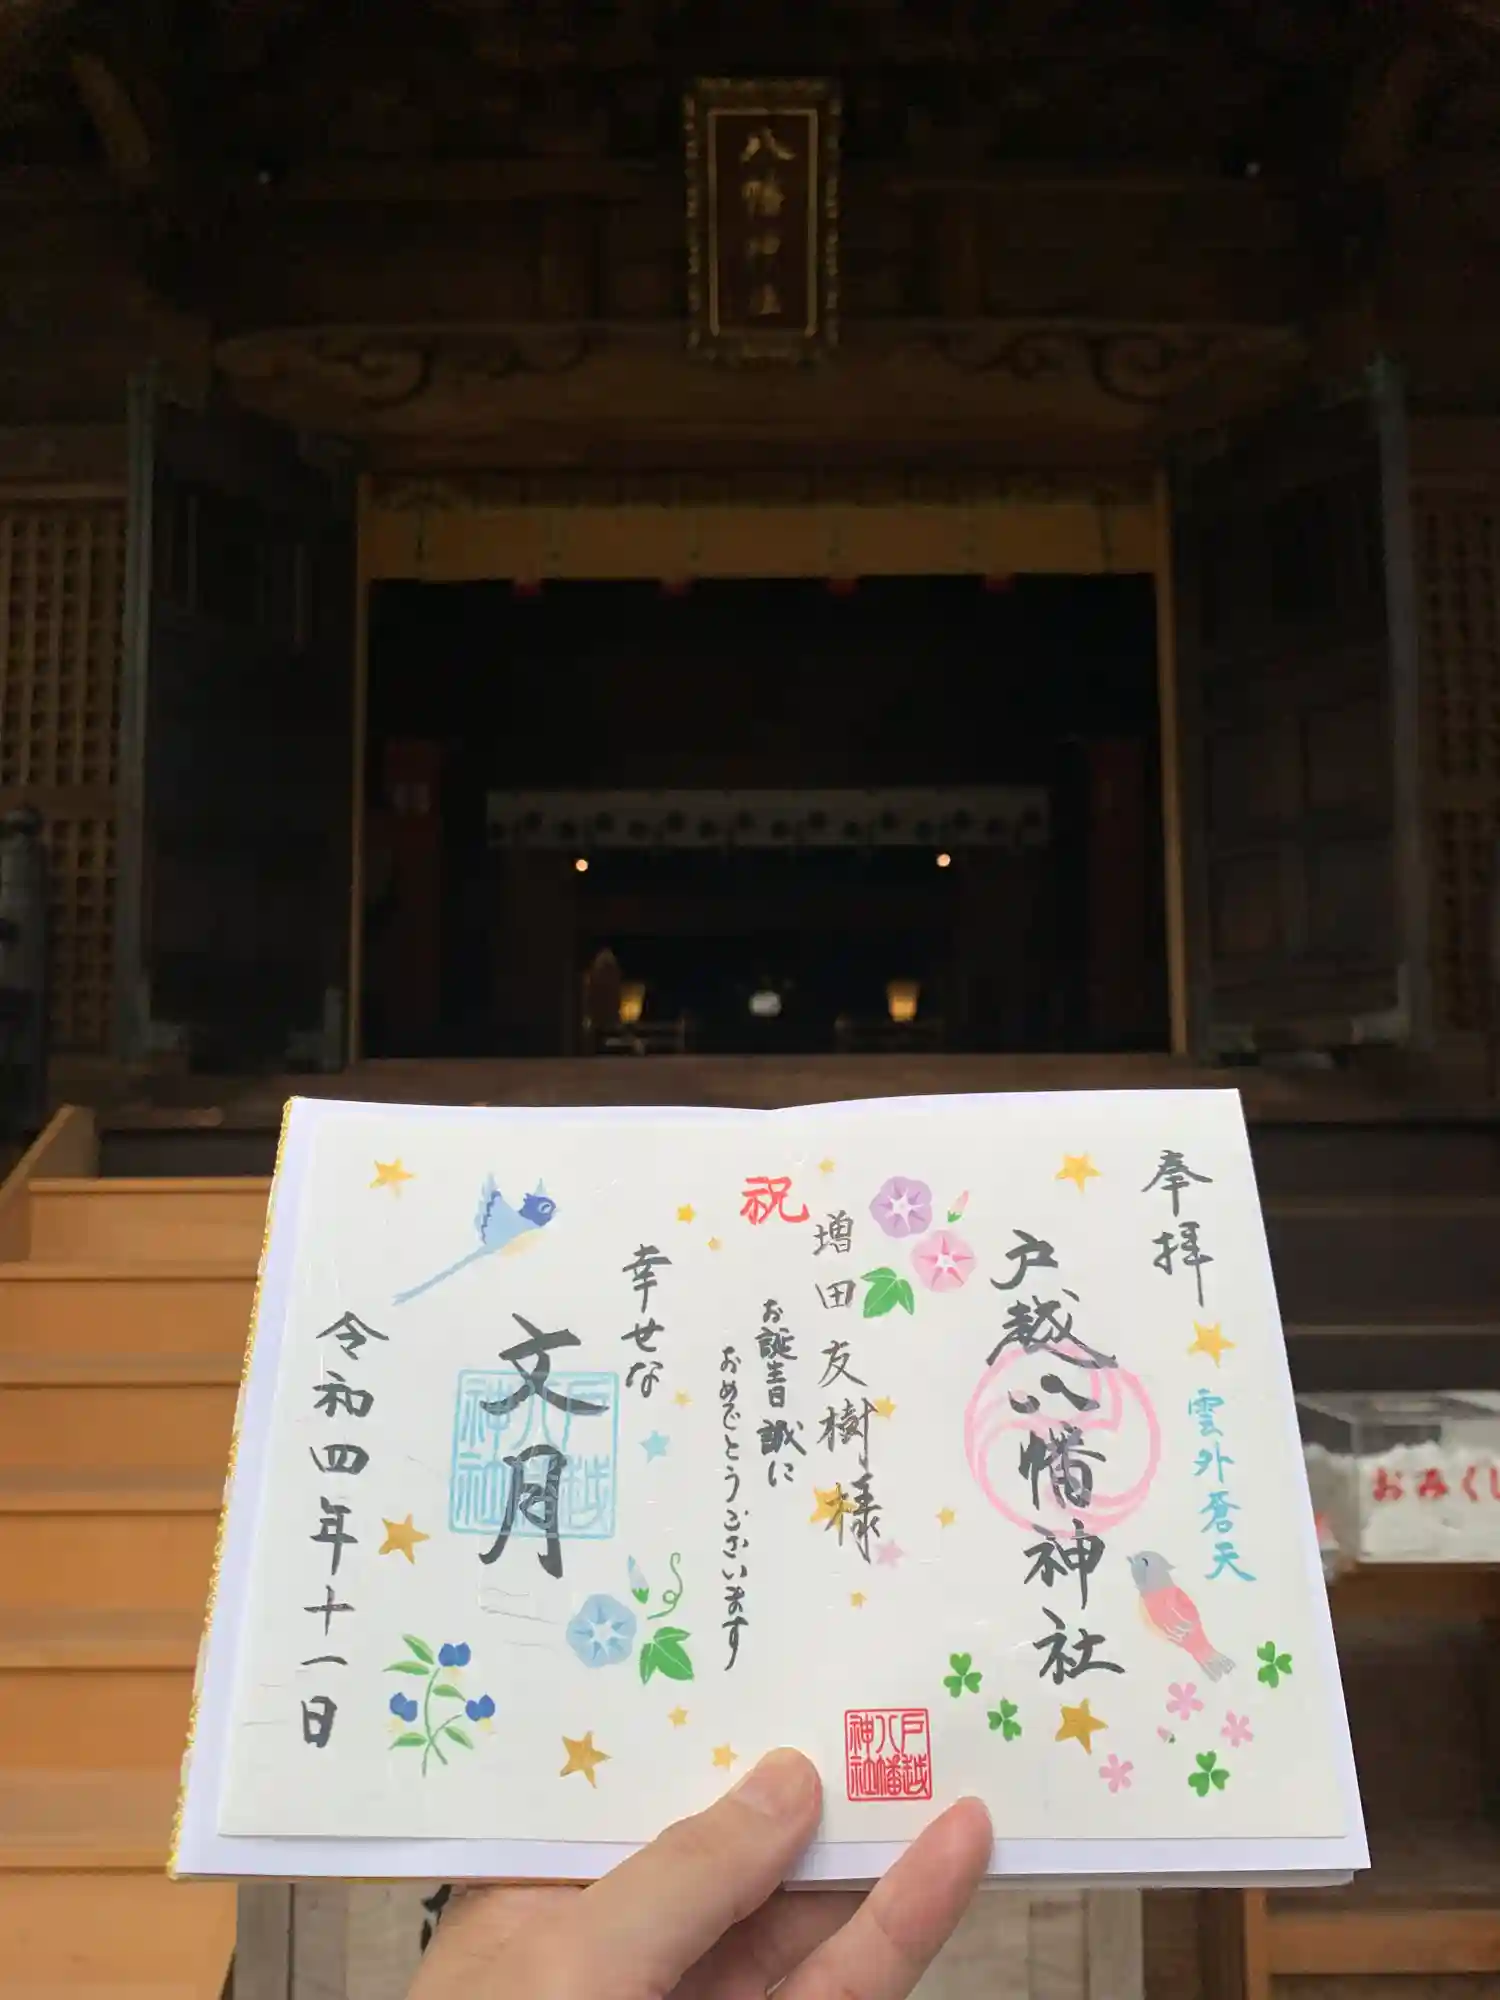 八幡神社
奉拝
雲外蒼天
戸越八幡神社
増田友樹様
祝
お誕生日 誠に
おめでとうございます
幸せな
文月
令和四年十一日
戸越八幡神社
戸越八幡神社
おみくじ